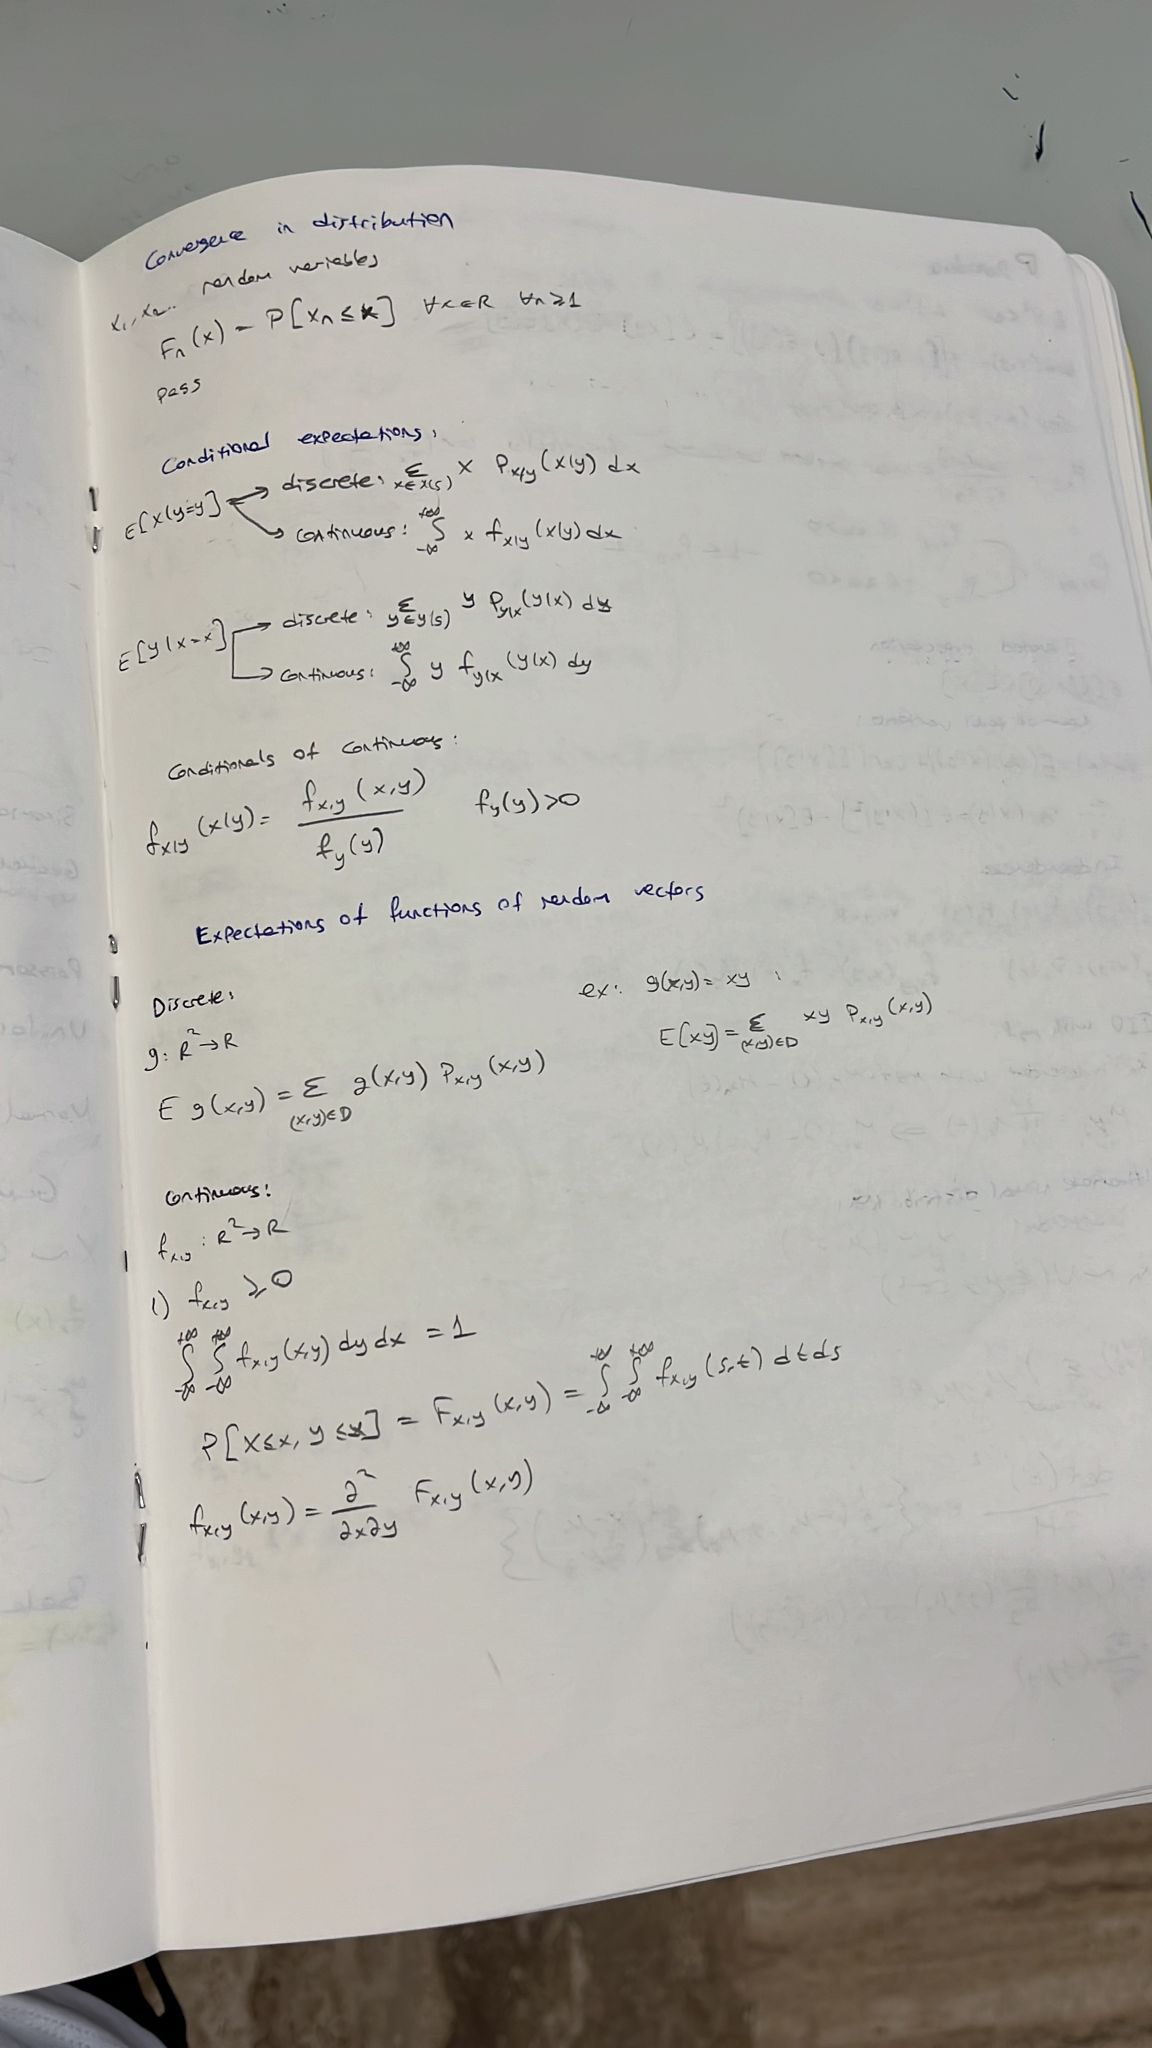 Convergence in distribution
x₁, x₂... random variables
Fₙ(x) = P[Xₙ ≤ x] ∀x∈R ∀n≥1
pass
Conditional expectations:
E[X|y=y] → discrete: Σ_{x∈X(s)} x P_{x|y}(x|y) dx
→ continuous: ∫_{-∞}^{+∞} x f_{x|y}(x|y) dx
E[y|x=x] → discrete: Σ_{y∈y(s)} y P_{y|x}(y|x) dy
→ continuous: ∫_{-∞}^{+∞} y f_{y|x}(y|x) dy
Conditionals of continuous:
f_{x|y}(x|y) = f_{x,y}(x,y) / f_y(y) f_y(y)>0
Expectations of functions of random vectors
Discrete:
g: R²→R
E g(x,y) = Σ_{(x,y)∈D} g(x,y) P_{x,y}(x,y)
ex: g(x,y) = xy :
E[xy] = Σ_{(x,y)∈D} xy P_{x,y}(x,y)
Continuous:
f_{x,y} : R²→R
1) f_{x,y} ≥ 0
∫_{-∞}^{+∞} ∫_{-∞}^{+∞} f_{x,y}(x,y) dy dx = 1
P[X≤x, y≤y] = F_{x,y}(x,y) = ∫_{-∞}^{+∞} ∫_{-∞}^{+∞} f_{x,y}(s,t) dt ds
f_{x,y}(x,y) = ∂²/∂x∂y F_{x,y}(x,y)